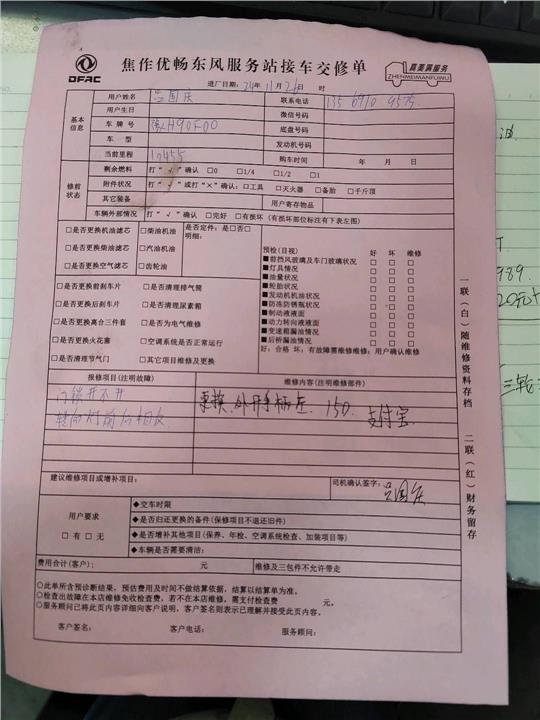 DFAC
焦作优畅东风服务站接车交修单
真美满服务
ZHENMEIMANFUWU
进厂日期：24年11月26日 时
基本信息
用户姓名 吕国庆 联系电话
用户生日 微信号码
车牌号 H90F00 底盘号码
车型 发动机号
当前里程 10455 购车时间 年 月 日
修前状态
剩余燃料 打“√”确认 □0 □1/4 □1/2 □1
附件状况 打“√”或打“×”确认：□工具 □灭火器 □备胎 □千斤顶
其它装备 用户寄存物品
车辆外部情况 打“√”确认 □完好 □有损坏（有损部位标注有下表左图）
□是否更换机油滤芯 □柴油机油 是否定件：是□否□
□是否更换柴油滤芯 □汽油机油 明细：
□是否更换空气滤芯 □齿轮油
□是否更换前刹车片 □是否清理排气筒
□是否更换后刹车片 □是否清理尿素箱
□是否更换离合三件套 □是否为电气维修
□是否更换火花塞 □空调系统是否正常运行
□是否清理节气门 □其它项目维修及更换
预检(目视) 好 坏 维修
■前挡风玻璃及车门玻璃状况 □ □ □
■灯具情况 □ □ □
■油量状况 □ □ □
■轮胎状况 □ □ □
■发动机机油状况 □ □ □
■防冻防锈瓶状况 □ □ □
■制动液液面 □ □ □
■动力转向液液面 □ □ □
■变速箱漏油情况 □ □ □
■后桥漏油情况 □ □ □
好：合格 坏：有故障需维修维修：用户确认维修
报修项目(注明故障) 维修内容(注明维修部件)
门锁开不开
转向灯前后相反
更换外开手柄左 150 支付宝
建议维修项目或增补项目： 司机确认签字：吕国庆
用户要求
□有 □无
◆交车时限
◆是否归还更换的备件(保修项目不退还旧件)
◆是否增补其他项目(保养、年检、空调系统检查、加装项目等)
◆车辆是否需要清洁：
费用合计(客户)： 元 维修及三包件不允许带走
○此单所含预诊断结果，预估费用及时间不做结算依据，结算以结算单为准。
○检查出故障在本店维修免收检查费，若不在本店维修，需支付检查费 元。
○服务顾问已将此页内容详细向客户说明，客户签名则表示已理解并接受此页内容。
客户签名： 客户电话： 服务顾问：
一联（白）随维修资料存档 二联（红）财务留存
989.
20元
三轮